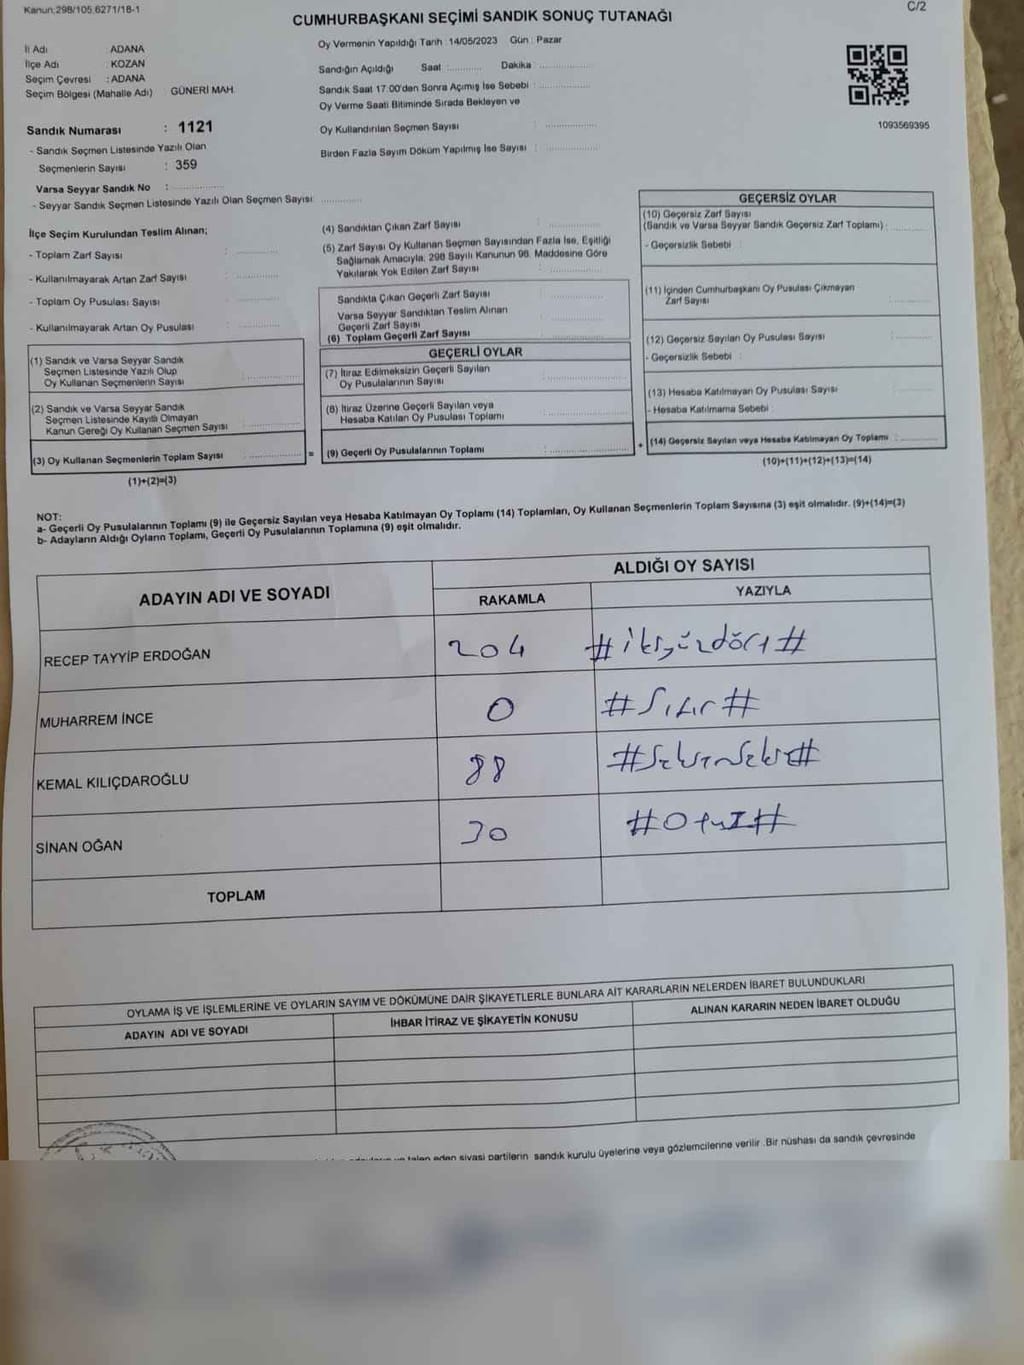 Kanun:298/105,6271/18-1
C/2
CUMHURBAŞKANI SEÇİMİ SANDIK SONUÇ TUTANAĞI
Oy Vermenin Yapıldığı Tarih : 14/05/2023 Gün : Pazar
İl Adı : ADANA
İlçe Adı : KOZAN
Seçim Çevresi : ADANA
Seçim Bölgesi (Mahalle Adı) : GÜNERİ MAH.
Sandığın Açıldığı Saat :............ Dakika ................
Sandık Saat 17.00'dan Sonra Açımış İse Sebebi : ...............
Oy Verme Saati Bitiminde Sırada Bekleyen ve
Oy Kullandırılan Seçmen Sayısı : ...............
Birden Fazla Sayım Döküm Yapılmış İse Sayısı : ...............
1093569395
Sandık Numarası : 1121
- Sandık Seçmen Listesinde Yazılı Olan
Seçmenlerin Sayısı : 359
Varsa Seyyar Sandık No : ...............
- Seyyar Sandık Seçmen Listesinde Yazılı Olan Seçmen Sayısı: ............
İlçe Seçim Kurulundan Teslim Alınan;
- Toplam Zarf Sayısı : ............
- Kullanılmayarak Artan Zarf Sayısı : ............
- Toplam Oy Pusulası Sayısı : ............
- Kullanılmayarak Artan Oy Pusulası : ............
(1) Sandık ve Varsa Seyyar Sandık
Seçmen Listesinde Yazılı Olup
Oy Kullanan Seçmenlerin Sayısı : ...............
(2) Sandık ve Varsa Seyyar Sandık
Seçmen Listesinde Kayıtlı Olmayan
Kanun Gereği Oy Kullanan Seçmen Sayısı : ...............
(3) Oy Kullanan Seçmenlerin Toplam Sayısı : ...............
(1)+(2)=(3)
(4) Sandıktan Çıkan Zarf Sayısı : ...............
(5) Zarf Sayısı Oy Kullanan Seçmen Sayısından Fazla İse, Eşitliği
Sağlamak Amacıyla, 298 Sayılı Kanunun 98. Maddesine Göre
Yakılarak Yok Edilen Zarf Sayısı : ...............
Sandıkta Çıkan Geçerli Zarf Sayısı : ...............
Varsa Seyyar Sandıktan Teslim Alınan
Geçerli Zarf Sayısı : ...............
(6) Toplam Geçerli Zarf Sayısı : ...............
GEÇERLİ OYLAR
(7) İtiraz Edilmeksizin Geçerli Sayılan
Oy Pusulalarının Sayısı : ...............
(8) İtiraz Üzerine Geçerli Sayılan veya
Hesaba Katılan Oy Pusulası Toplamı : ...............
= (9) Geçerli Oy Pusulalarının Toplamı : ...............
GEÇERSİZ OYLAR
(10) Geçersiz Zarf Sayısı
(Sandık ve Varsa Seyyar Sandık Geçersiz Zarf Toplamı) : .........
- Geçersizlik Sebebi :
(11) İçinden Cumhurbaşkanı Oy Pusulası Çıkmayan
Zarf Sayısı : .........
(12) Geçersiz Sayılan Oy Pusulası Sayısı : .........
- Geçersizlik Sebebi :
(13) Hesaba Katılmayan Oy Pusulası Sayısı : .........
- Hesaba Katılmama Sebebi :
+ (14) Geçersiz Sayılan veya Hesaba Katılmayan Oy Toplamı : .........
(10)+(11)+(12)+(13)=(14)
NOT:
a- Geçerli Oy Pusulalarının Toplamı (9) ile Geçersiz Sayılan veya Hesaba Katılmayan Oy Toplamı (14) Toplamları, Oy Kullanan Seçmenlerin Toplam Sayısına (3) eşit olmalıdır. (9)+(14)=(3)
b- Adayların Aldığı Oyların Toplamı, Geçerli Oy Pusulalarının Toplamına (9) eşit olmalıdır.
ADAYIN ADI VE SOYADI ALDIĞI OY SAYISI
RAKAMLA YAZIYLA
RECEP TAYYİP ERDOĞAN 204 #ikiyüzdört#
MUHARREM İNCE 0 #Sıfır#
KEMAL KILIÇDAROĞLU 88 #Seksensekiz#
SİNAN OĞAN 30 #Otuz#
TOPLAM
OYLAMA İŞ VE İŞLEMLERİNE VE OYLARIN SAYIM VE DÖKÜMÜNE DAİR ŞİKAYETLERLE BUNLARA AİT KARARLARIN NELERDEN İBARET BULUNDUKLARI
ADAYIN ADI VE SOYADI İHBAR İTİRAZ VE ŞİKAYETİN KONUSU ALINAN KARARIN NEDEN İBARET OLDUĞU
talep eden siyasi partilerin sandık kurulu üyelerine veya gözlemcilerine verilir .Bir nüshası da sandık çevresinde